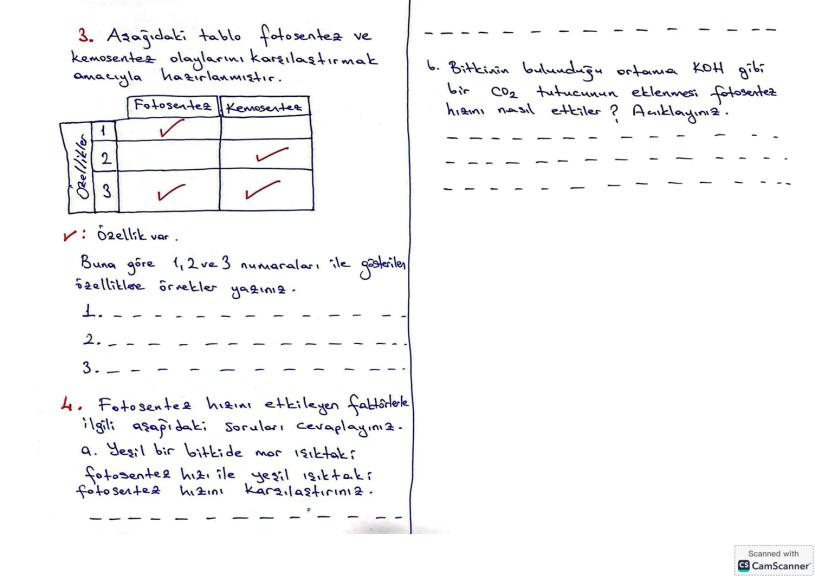 3. Aşağıdaki tablo fotosentez ve
kemosentez olaylarını karşılaştırmak
amacıyla hazırlanmıştır.
Fotosentez Kemosentez
Özellikler
1 ✓
2 ✓
3 ✓ ✓
✓: Özellik var.
Buna göre 1, 2 ve 3 numaraları ile gösterilen
özelliklere örnekler yazınız.
1. _ _ _ _ _ _ _ _ _ _ _ _
2. _ _ _ _ _ _ _ _ _ _ _ _
3. _ _ _ _ _ _ _ _ _ _ _ _
4. Fotosentez hızını etkileyen faktörlerle
ilgili aşağıdaki soruları cevaplayınız.
a. Yeşil bir bitkide mor ışıktaki
fotosentez hızı ile yeşil ışıktaki
fotosentez hızını karşılaştırınız.
b. Bitkinin bulunduğu ortama KOH gibi
bir CO2 tutucunun eklenmesi fotosentez
hızını nasıl etkiler? Açıklayınız.
Scanned with
CS CamScanner